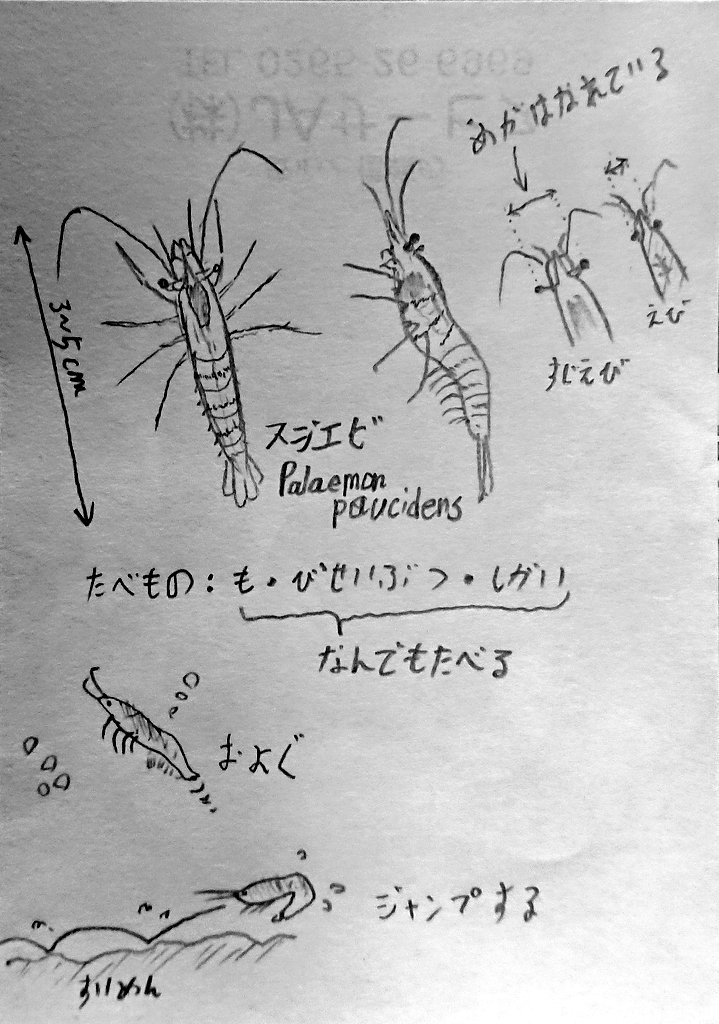 めがはなれている
3~5cm
えび
すじえび
スジエビ
Palaemon
paucidens
たべもの:も・びせいぶつ・しがい
なんでもたべる
およぐ
ジャンプする
すいめん